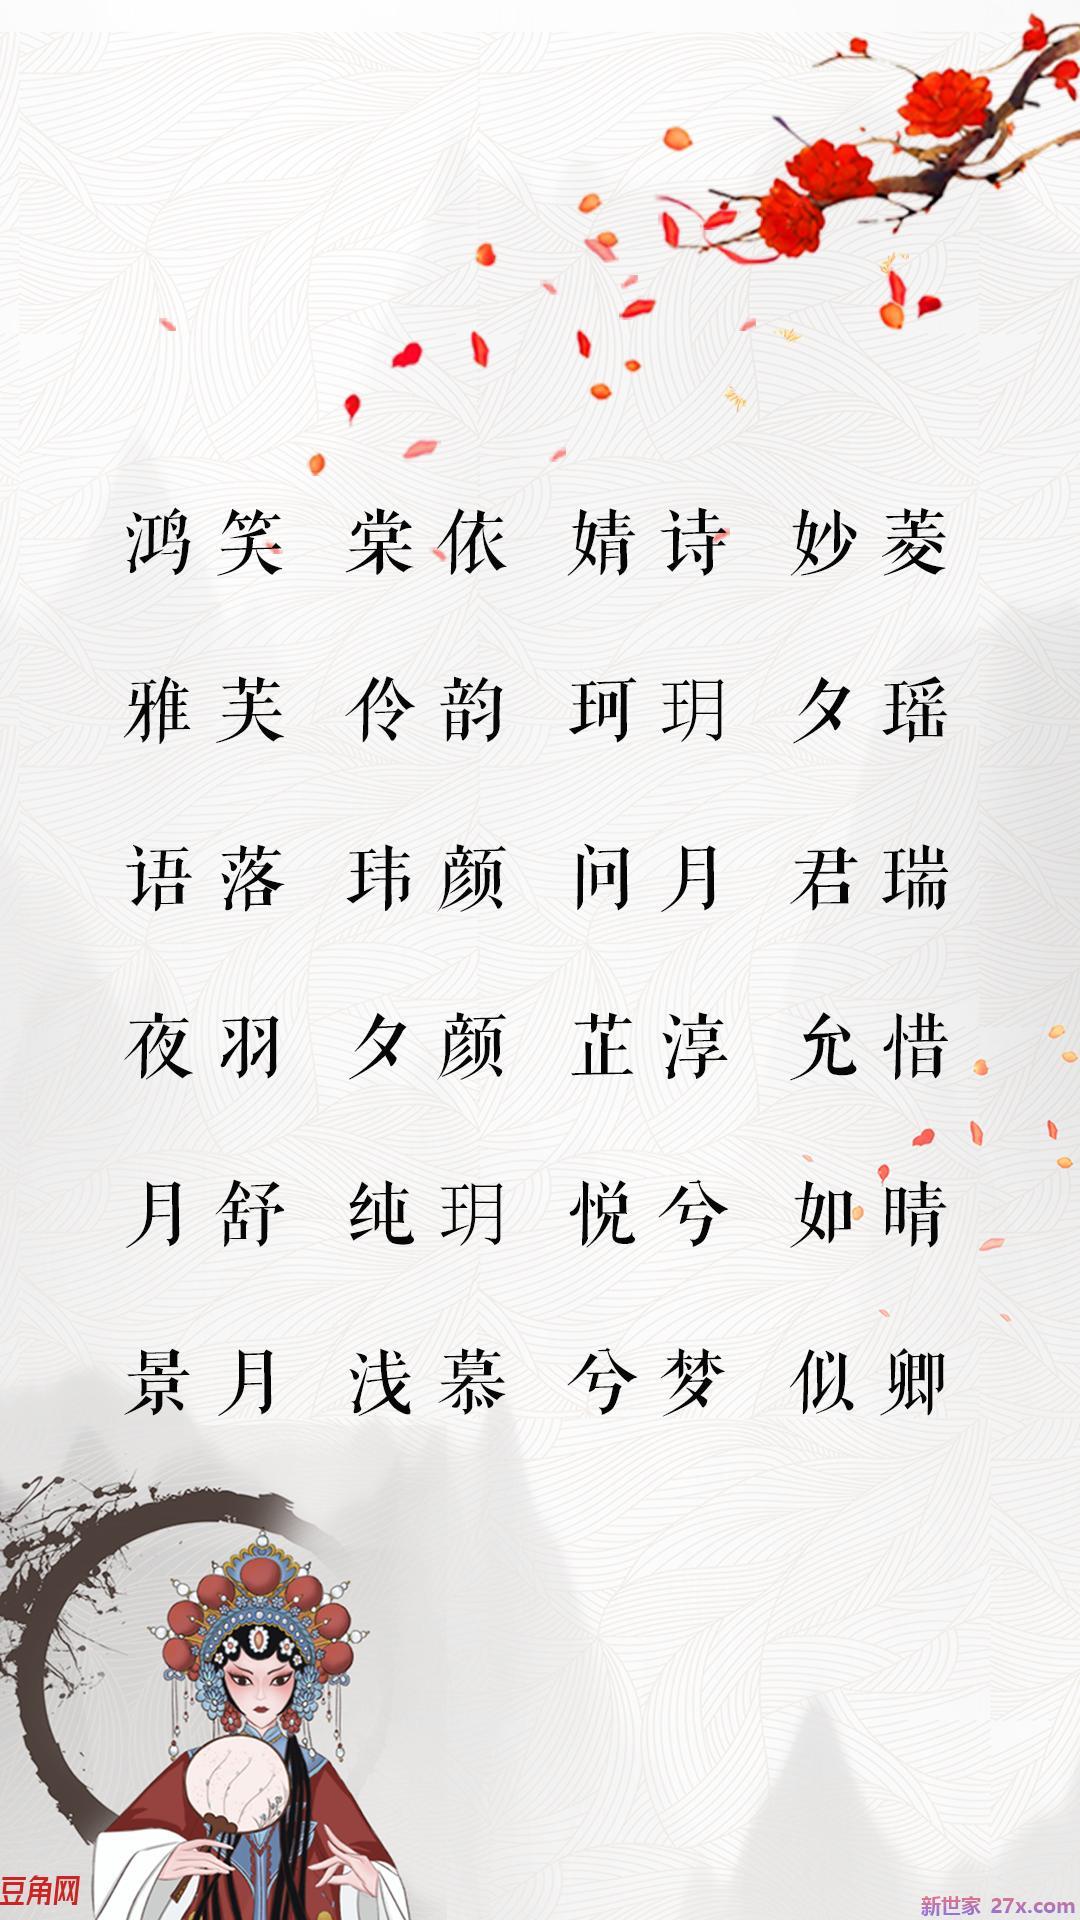 鸿笑 棠依 婧诗 妙菱
雅芙 伶韵 珂玥 夕瑶
语落 玮颜 问月 君瑞
夜羽 夕颜 芷淳 允惜
月舒 纯玥 悦兮 如晴
景月 浅慕 兮梦 似卿
豆角网
新世家 27x.com